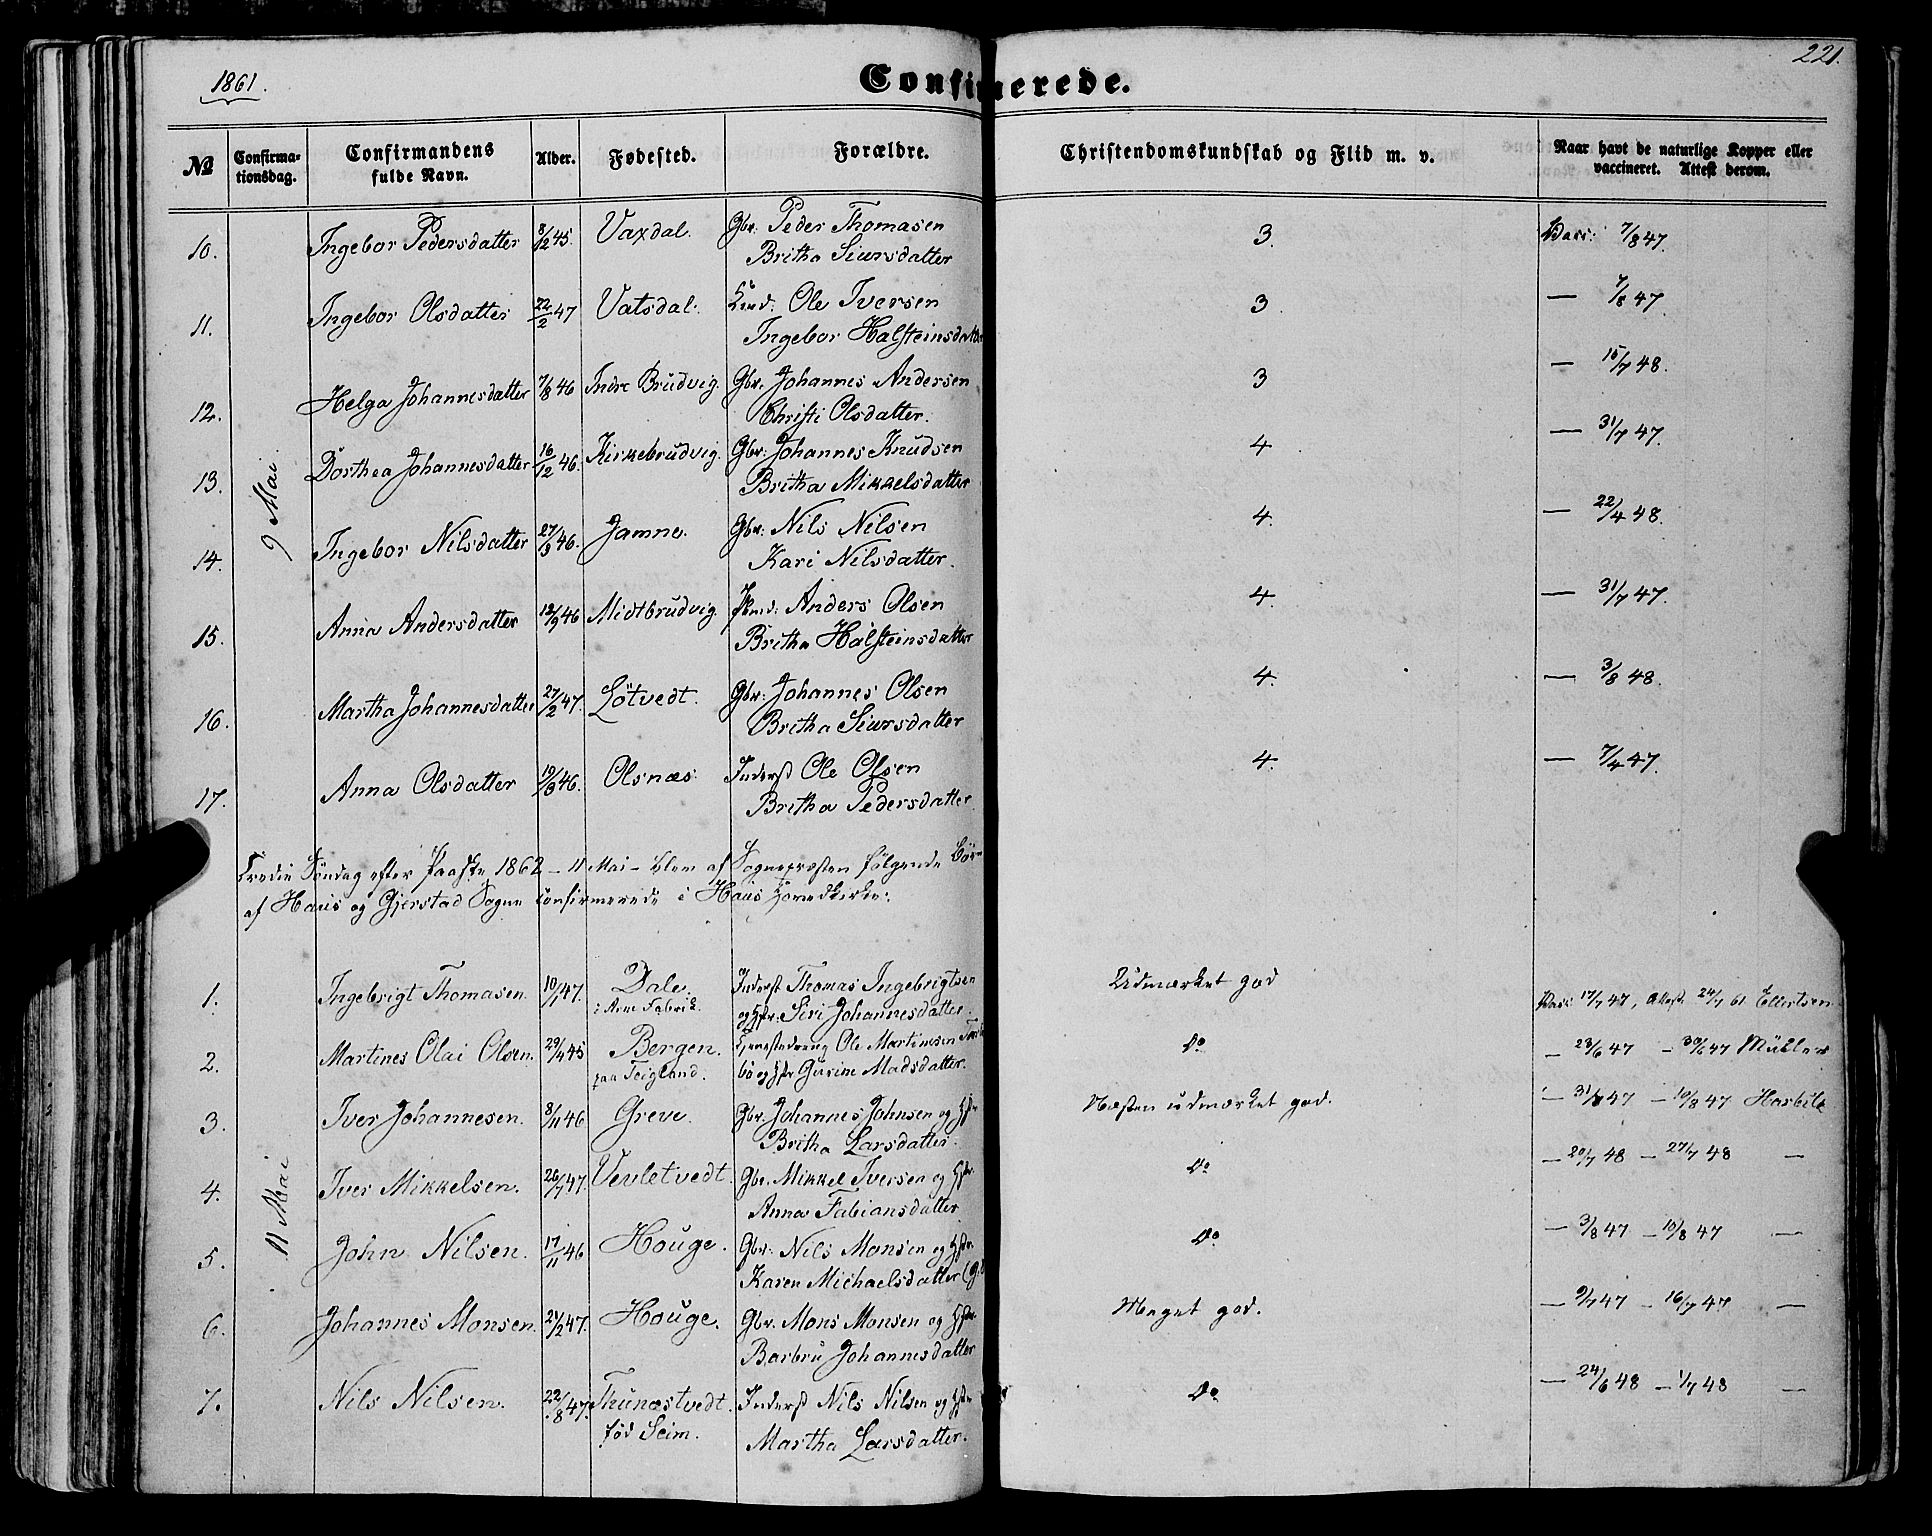 1861.
Confirmerede.
221.
No
Confirma-
tionsdag.
Confirmandens
fulde Navn.
Alder.
Fødested.
Forældre.
Christendomskundskab og Flid m. v.
Naar havt de naturlige Kopper eller
vaccineret. Attest derom.
9 Mai.
10. Ingebor Pedersdatter 8/12 45. Vaxdal. Gbr. Peder Thomasen 3. Vacc: 7/8 47.
Britha Siursdatter
11. Ingebor Olsdatter 22/2 47 Vatsdal. Ole Iversen 3 — 7/8 47
Ingebor Halsteinsdatter
12. Helga Johannesdatter 7/8 46 Indre Brudvig. Gbr. Johannes Andersen 3 — 15/7 48.
Christi Olsdatter.
13. Dorthea Johannesdatter 16/12 46. Kirkebrudvig. Gbr: Johannes Knudsen 4 — 31/7 47.
Britha Mikkelsdatter
14. Ingebor Nilsdatter 27/9 46. Jamne. Gbr: Nils Nilsen 4. — 22/4 48.
Kari Nilsdatter.
15. Anna Andersdatter 12/9 46 Midtbrudvig. Anders Olsen 4. — 31/7 47.
Britha Halsteinsdatter
16. Martha Johannesdatter 27/2 47. Løtvedt. Gbr: Johannes Olsen 4. — 3/8 48.
Britha Siursdatter
17. Anna Olsdatter 19/8 46. Olsnæs. Inderst Ole Olsen 4. — 7/4 47.
Britha Pedersdatter
Tredie Søndag efter Paaske 1862 – 11 Mai – blev af Sognepræsten følgende Børn
af Haus og Gjerstad Sogne confirmerede i Haus Hovedkirke:
11 Mai
1. Ingebrigt Thomasen. 10/1 47. Dale. Inderst Thomas Ingebrigtsen Udmærket god Vacc: 17/7 47, Attest 24/7 61 Ellertsen
i Arne Fabrik. og Hstr. Siri Johannesdatter.
2. Martines Olai Olsen. 29/4 45 Bergen. Tjenestedreng Ole Martinsen Do — 23/6 47 — 30/6 47 Müller
paa Teigland. bø og Hstr Gurine Madsdatter.
3. Iver Johannesen. 8/11 46 Greve. Gbr. Johannes Johnsen og Hstr Næsten udmærket god. — 31/7 47 — 10/8 47 Harbitz
Britha Larsdatter.
4. Iver Mikkelsen. 26/7 47. Vevletvedt. Gbr. Mikkel Iversen og Hstr. Do — 20/7 48 — 27/7 48 —
Anna Fabiansdatter
5. John Nilsen. 17/11 46 Houge. Gbr. Nils Monsen og Hstr. Do — 3/8 47 — 10/8 47 —
Karen Michaelsdatter
6. Johannes Monsen. 21/2 47. Houge. Gbr. Mons Monsen og Hstr. Meget god. — 9/7 47 — 16/7 47 —
Barbru Johannesdatter
7. Nils Nilsen. 22/8 47. Thunæstvedt. Inderst Nils Nilsen og Hstr Do — 24/6 48 — 1/7 48 —
fød Seim. Martha Larsdatter.